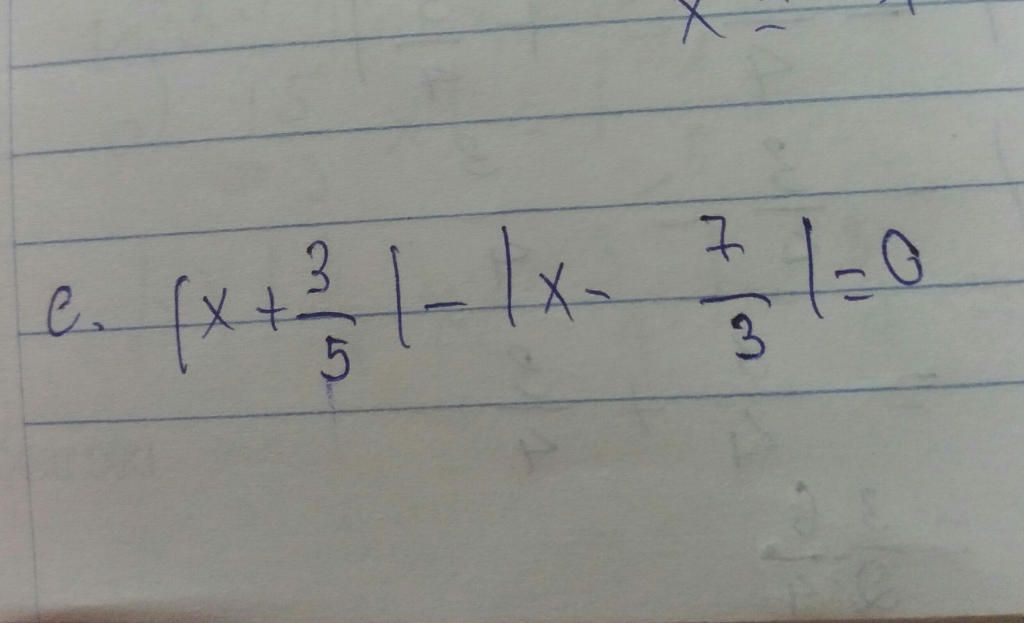 x =
c. |x + 3/5| - |x - 7/3| = 0